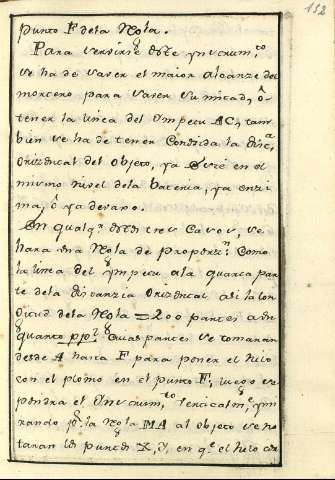 152
punto F dela Regla.
Para servirse deste ynstrum.to
se ha de saver el maior alcanze del
mortero para saver su mitad, ô
tener la linea del Ympetu AC, tam-
bien se ha de tener Conosida la dista.
Orizontal del objeto, ya esté en el
mismo nivel dela bateria, ya enzi-
ma, ô ya devaxo.
En qualq.r destos tres Casos, se
hara una Regla de proporzn. Como
la linea del ympetu ala quarta par-
te dela distanzia Orizontal, asi la lon-
gitud dela Regla = 200 partes a un
quarto pp.l Cuias partes se tomaran
desde A hasta F para poner el hilo
con el plomo en el punto F, luego se
pondra el Ynstrum.to verticalm.e, y mi-
rando p.r la Regla MA al objeto se no-
taran los puntos X, Y, en q.e el hilo cor